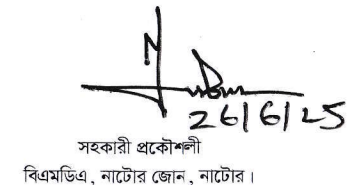 26/6/25
সহকারী প্রকৌশলী
বিএমডিএ, নাটোর জোন, নাটোর।